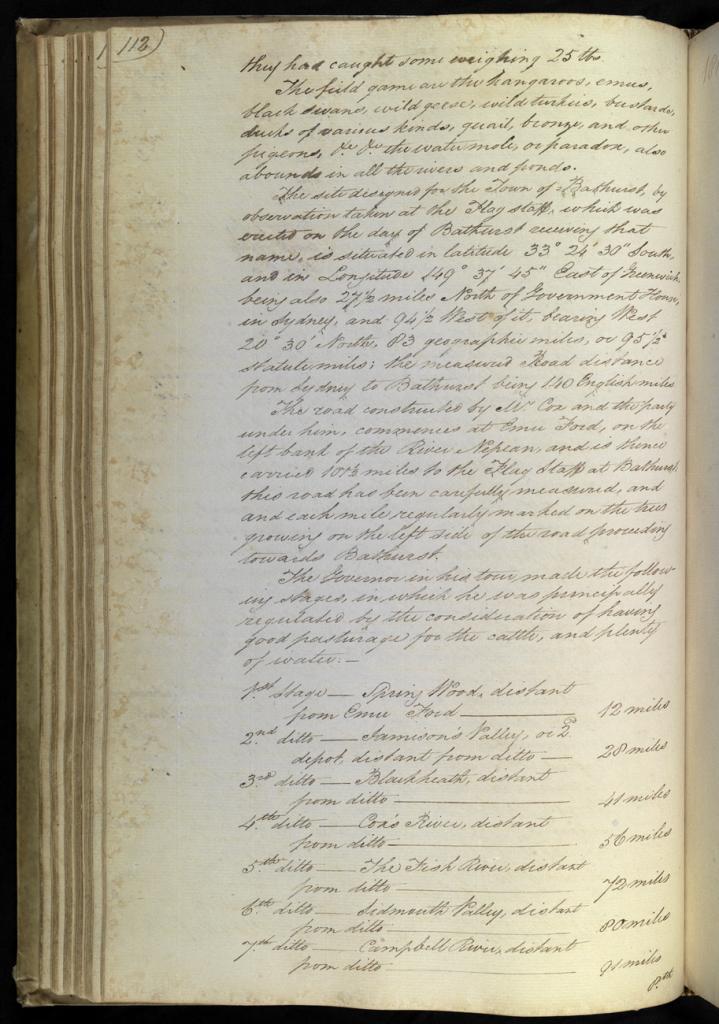 112)
they had caught some weighing 25 lbs.
The field game are the kangaroos, emus,
black swans, wild geese, wild turkeys, bustards,
ducks of various kinds, quail, bronze, and other
pigeons, &c &c the water mole, or paradox, also
abounds in all the rivers and ponds.
The site designed for the Town of Bathurst, by
observation taken at the Flag staff, which was
erected on the day of Bathurst receiving that
name, is situated in latitude 33° 24' 30" South,
and in Longitude 149° 37' 45" East of Greenwich
being also 27 1/2 miles North of Government House,
in Sydney, and 94 1/2 West of it, bearing West
20° 30' North, 83 geographic miles, or 95 1/2
statute miles; the measured Road distance
from Sydney to Bathurst being 140 English miles
The road constructed by Mr Cox and the party
under him, commences at Emu Ford, on the
left bank of the River Nepean, and is thence
carried 101 1/2 miles to the Flag Staff at Bathurst,
this road has been carefully measured, and
and each mile regularly marked on the trees
growing on the left side of the road proceeding
towards Bathurst.
The Governor in his tour made the follow-
ing stages, in which he was principally
regulated by the consideration of having
good pasturage for the cattle, and plenty
of water:—
1st Stage — Spring Wood, distant
from Emu Ford — 12 miles
2nd ditto — Jamison's Valley, or 2d
depot, distant from ditto — 28 miles
3rd ditto — Blackheath, distant
from ditto — 41 miles
4th ditto — Cox's River, distant
from ditto — 56 miles
5th ditto — The Fish River, distant
from ditto — 72 miles
6th ditto — Sidmouth Valley, distant
from ditto — 80 miles
7th ditto — Campbell River, distant
from ditto — 91 miles